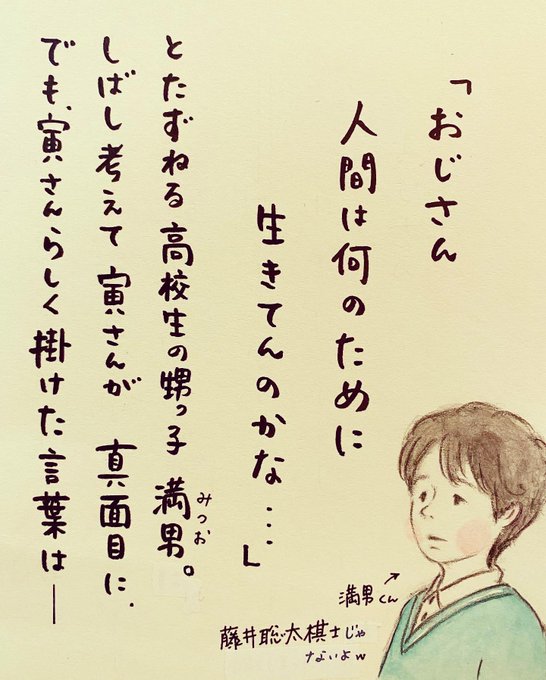 「おじさん
人間は何のために
生きてんのかな…」
とたずねる高校生の甥っ子 満男。
みつお
しばし考えて寅さんが 真面目に、
でも、寅さんらしく掛けた言葉は──
満男くん
藤井聡太棋士じゃ
ないよw